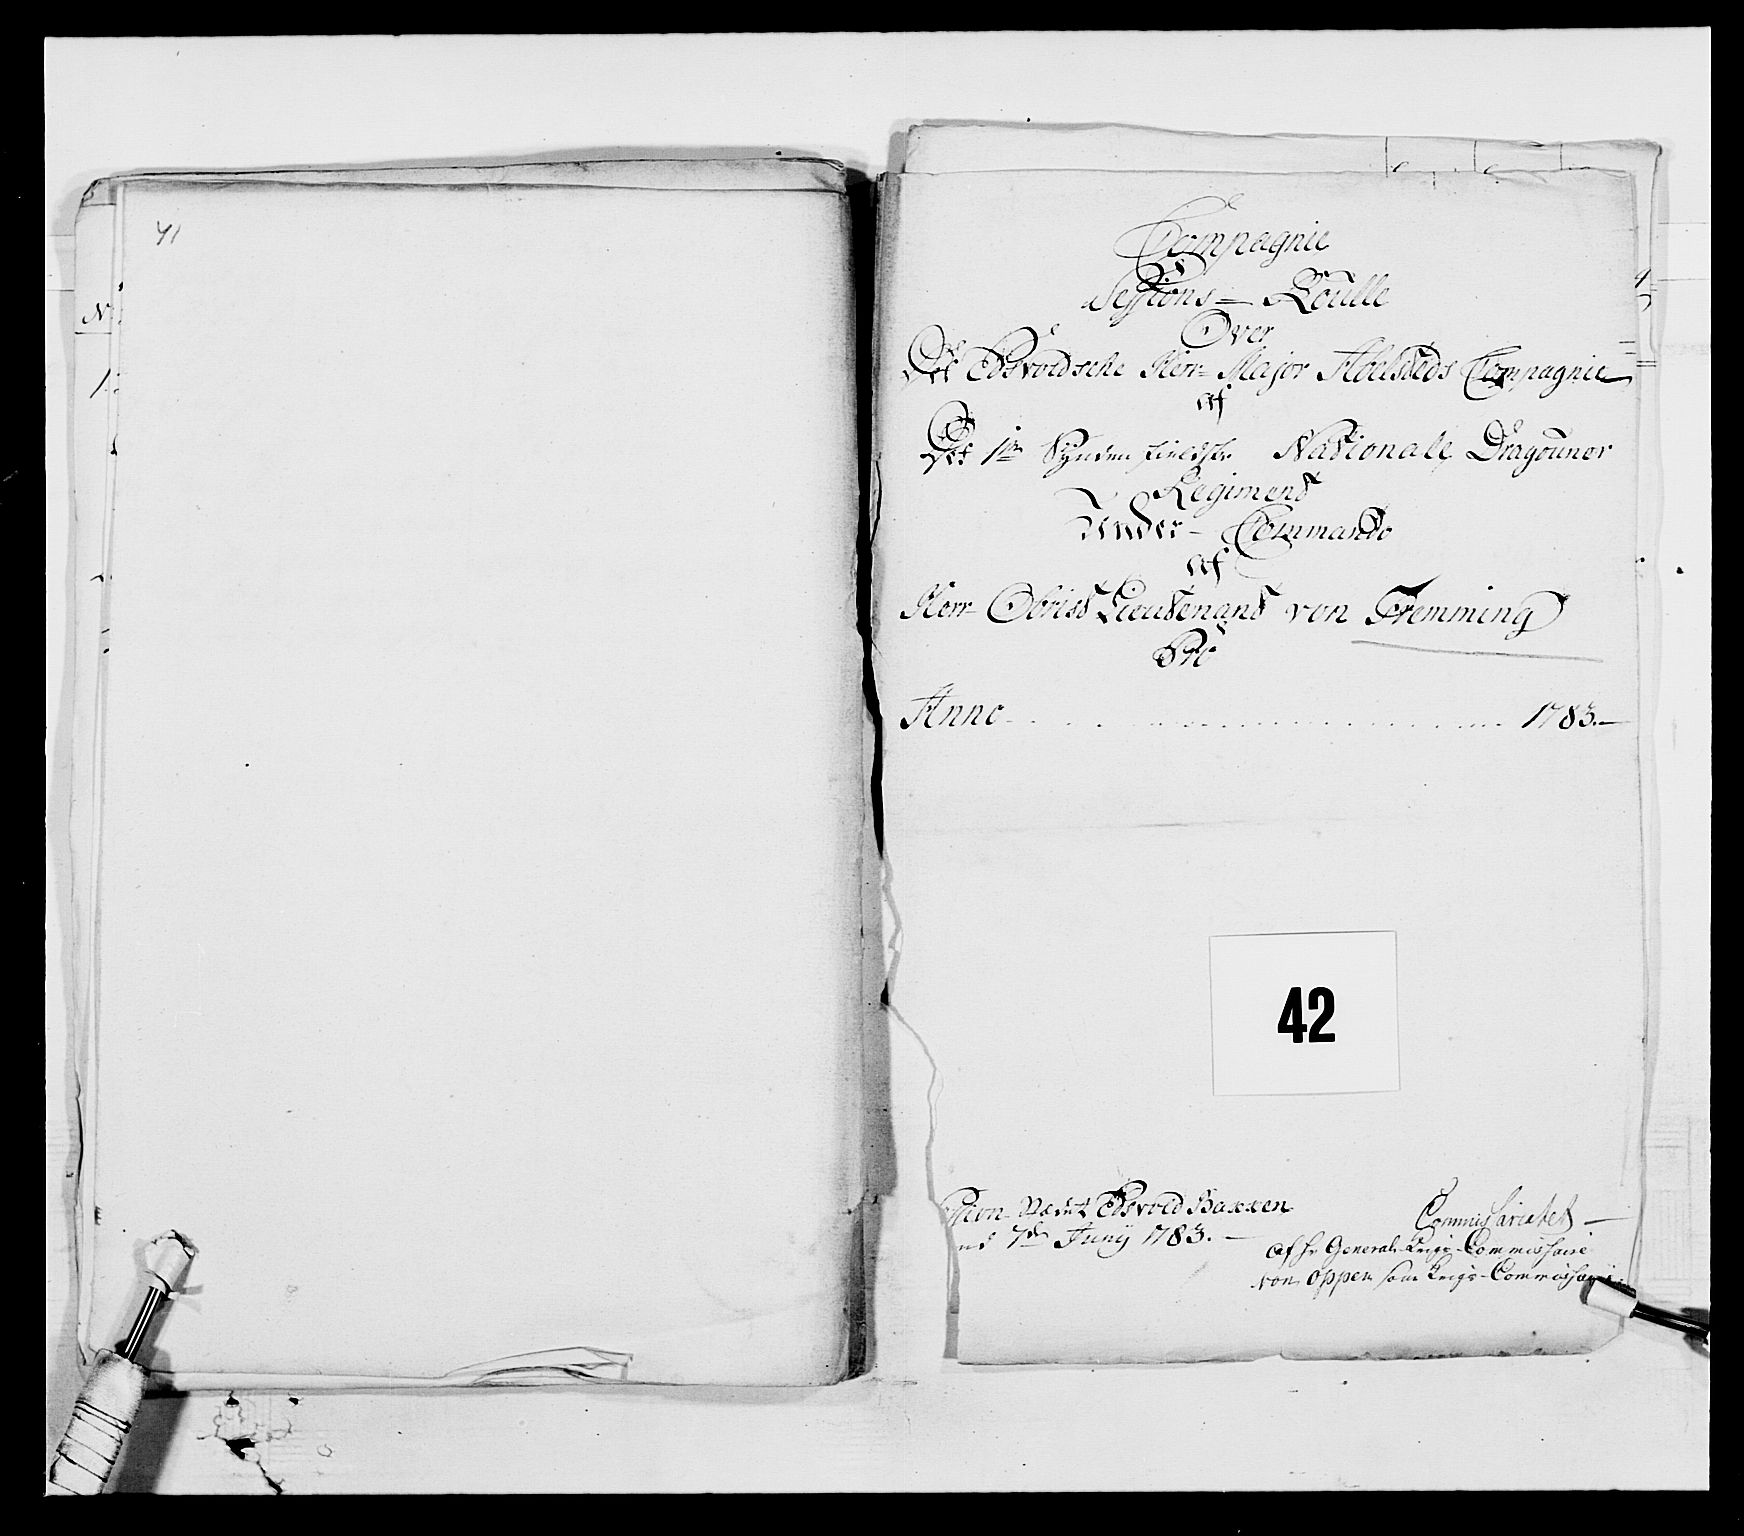 41
Compagnie
Sessions - Roulle
Over
Det Edsvoldsche Herr Major Hoelsteds Compagnie
Af
Det 1te Søndenfieldske Nationale Dragouner
Regiment
Under - Commando
Af
Herr Obrist Lieutenant von Fremming
Pro
Anno 1783.
42
sion Stædet Edsvold Backen
7de Juny 1783.
Commissariatet
Af Hr General Krigs Commissaire
von Oppen som Krigs-Commissaire